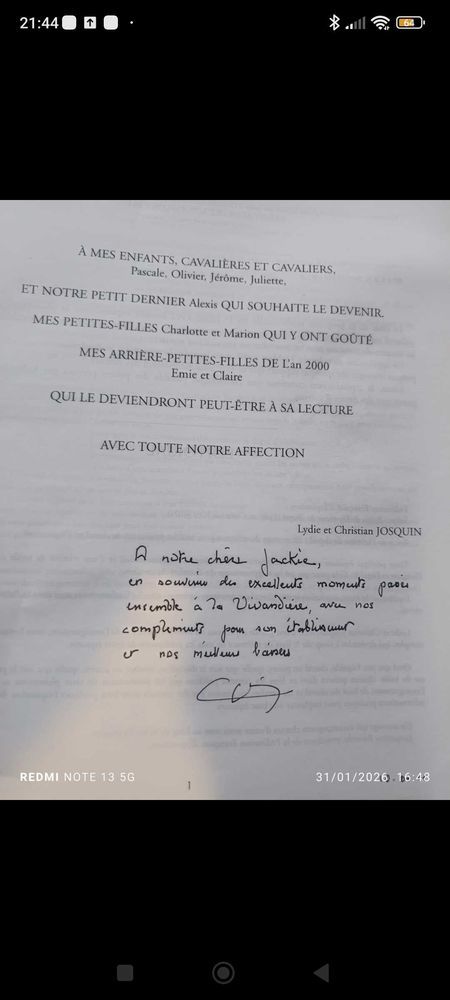 21:44
64
À MES ENFANTS, CAVALIÈRES ET CAVALIERS,
Pascale, Olivier, Jérôme, Juliette,
ET NOTRE PETIT DERNIER Alexis QUI SOUHAITE LE DEVENIR.
MES PETITES-FILLES Charlotte et Marion QUI Y ONT GOÛTÉ
MES ARRIÈRE-PETITES-FILLES DE L'an 2000
Emie et Claire
QUI LE DEVIENDRONT PEUT-ÊTRE À SA LECTURE
AVEC TOUTE NOTRE AFFECTION
Lydie et Christian JOSQUIN
A notre chère Jackie,
en souvenir des excellents moments passés
ensemble à la Vivandière, avec nos
compliments pour son établissement
et nos meilleurs baisers
REDMI NOTE 13 5G
1
31/01/2026 16:48